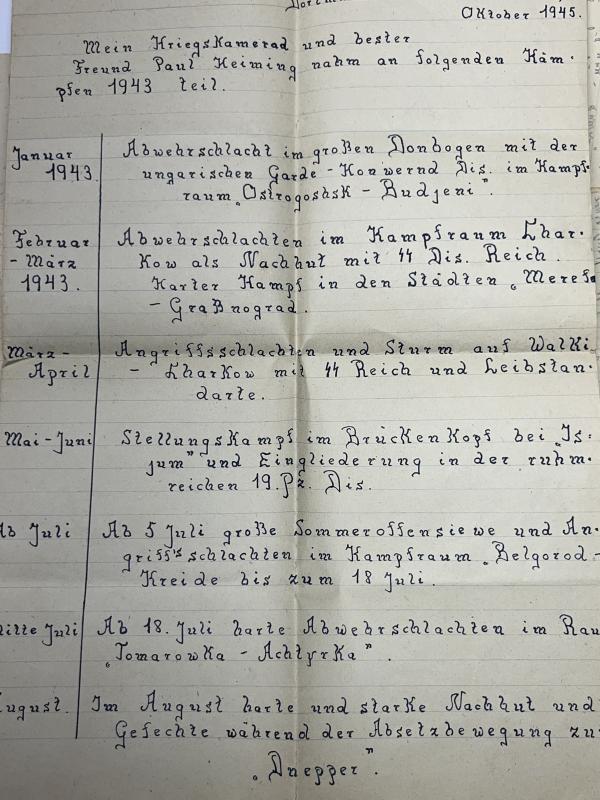 Oktober 1945.
Mein Kriegskamerad und bester
Freund Paul Heiming nahm an folgenden Käm-
pfen 1943 teil.
Januar 1943.
Abwehrschlacht im großen Donbogen mit der
ungarischen Garde-Honwernd Dis. im Kampf-
raum „Ostrogoshsk - Budjeni".
Februar - März 1943.
Abwehrschlachten im Kampfraum Char-
kow als Nachhut mit SS Dis. Reich.
Harter Kampf in den Städten „Meref
- Graßnograd.
März - April
Angriffsschlachten und Sturm auf Walki
- Charkow mit SS Reich und Leibstan-
darte.
Mai-Juni
Stellungskampf im Brückenkopf bei „Is-
jum" und Eingliederung in der ruhm-
reichen 19.Pz. Dis.
Ab Juli
Ab 5 Juli große Sommeroffensiewe und An-
griff's schlachten im Kampfraum „Belgorod-
Kreide bis zum 18 Juli.
Mitte Juli
Ab 18. Juli harte Abwehrschlachten im Rau
„Tomarowka - Achtyrka".
August.
Im August harte und starke Nachhut und
Gefechte während der Absetzbewegung zu
„Dnepper".